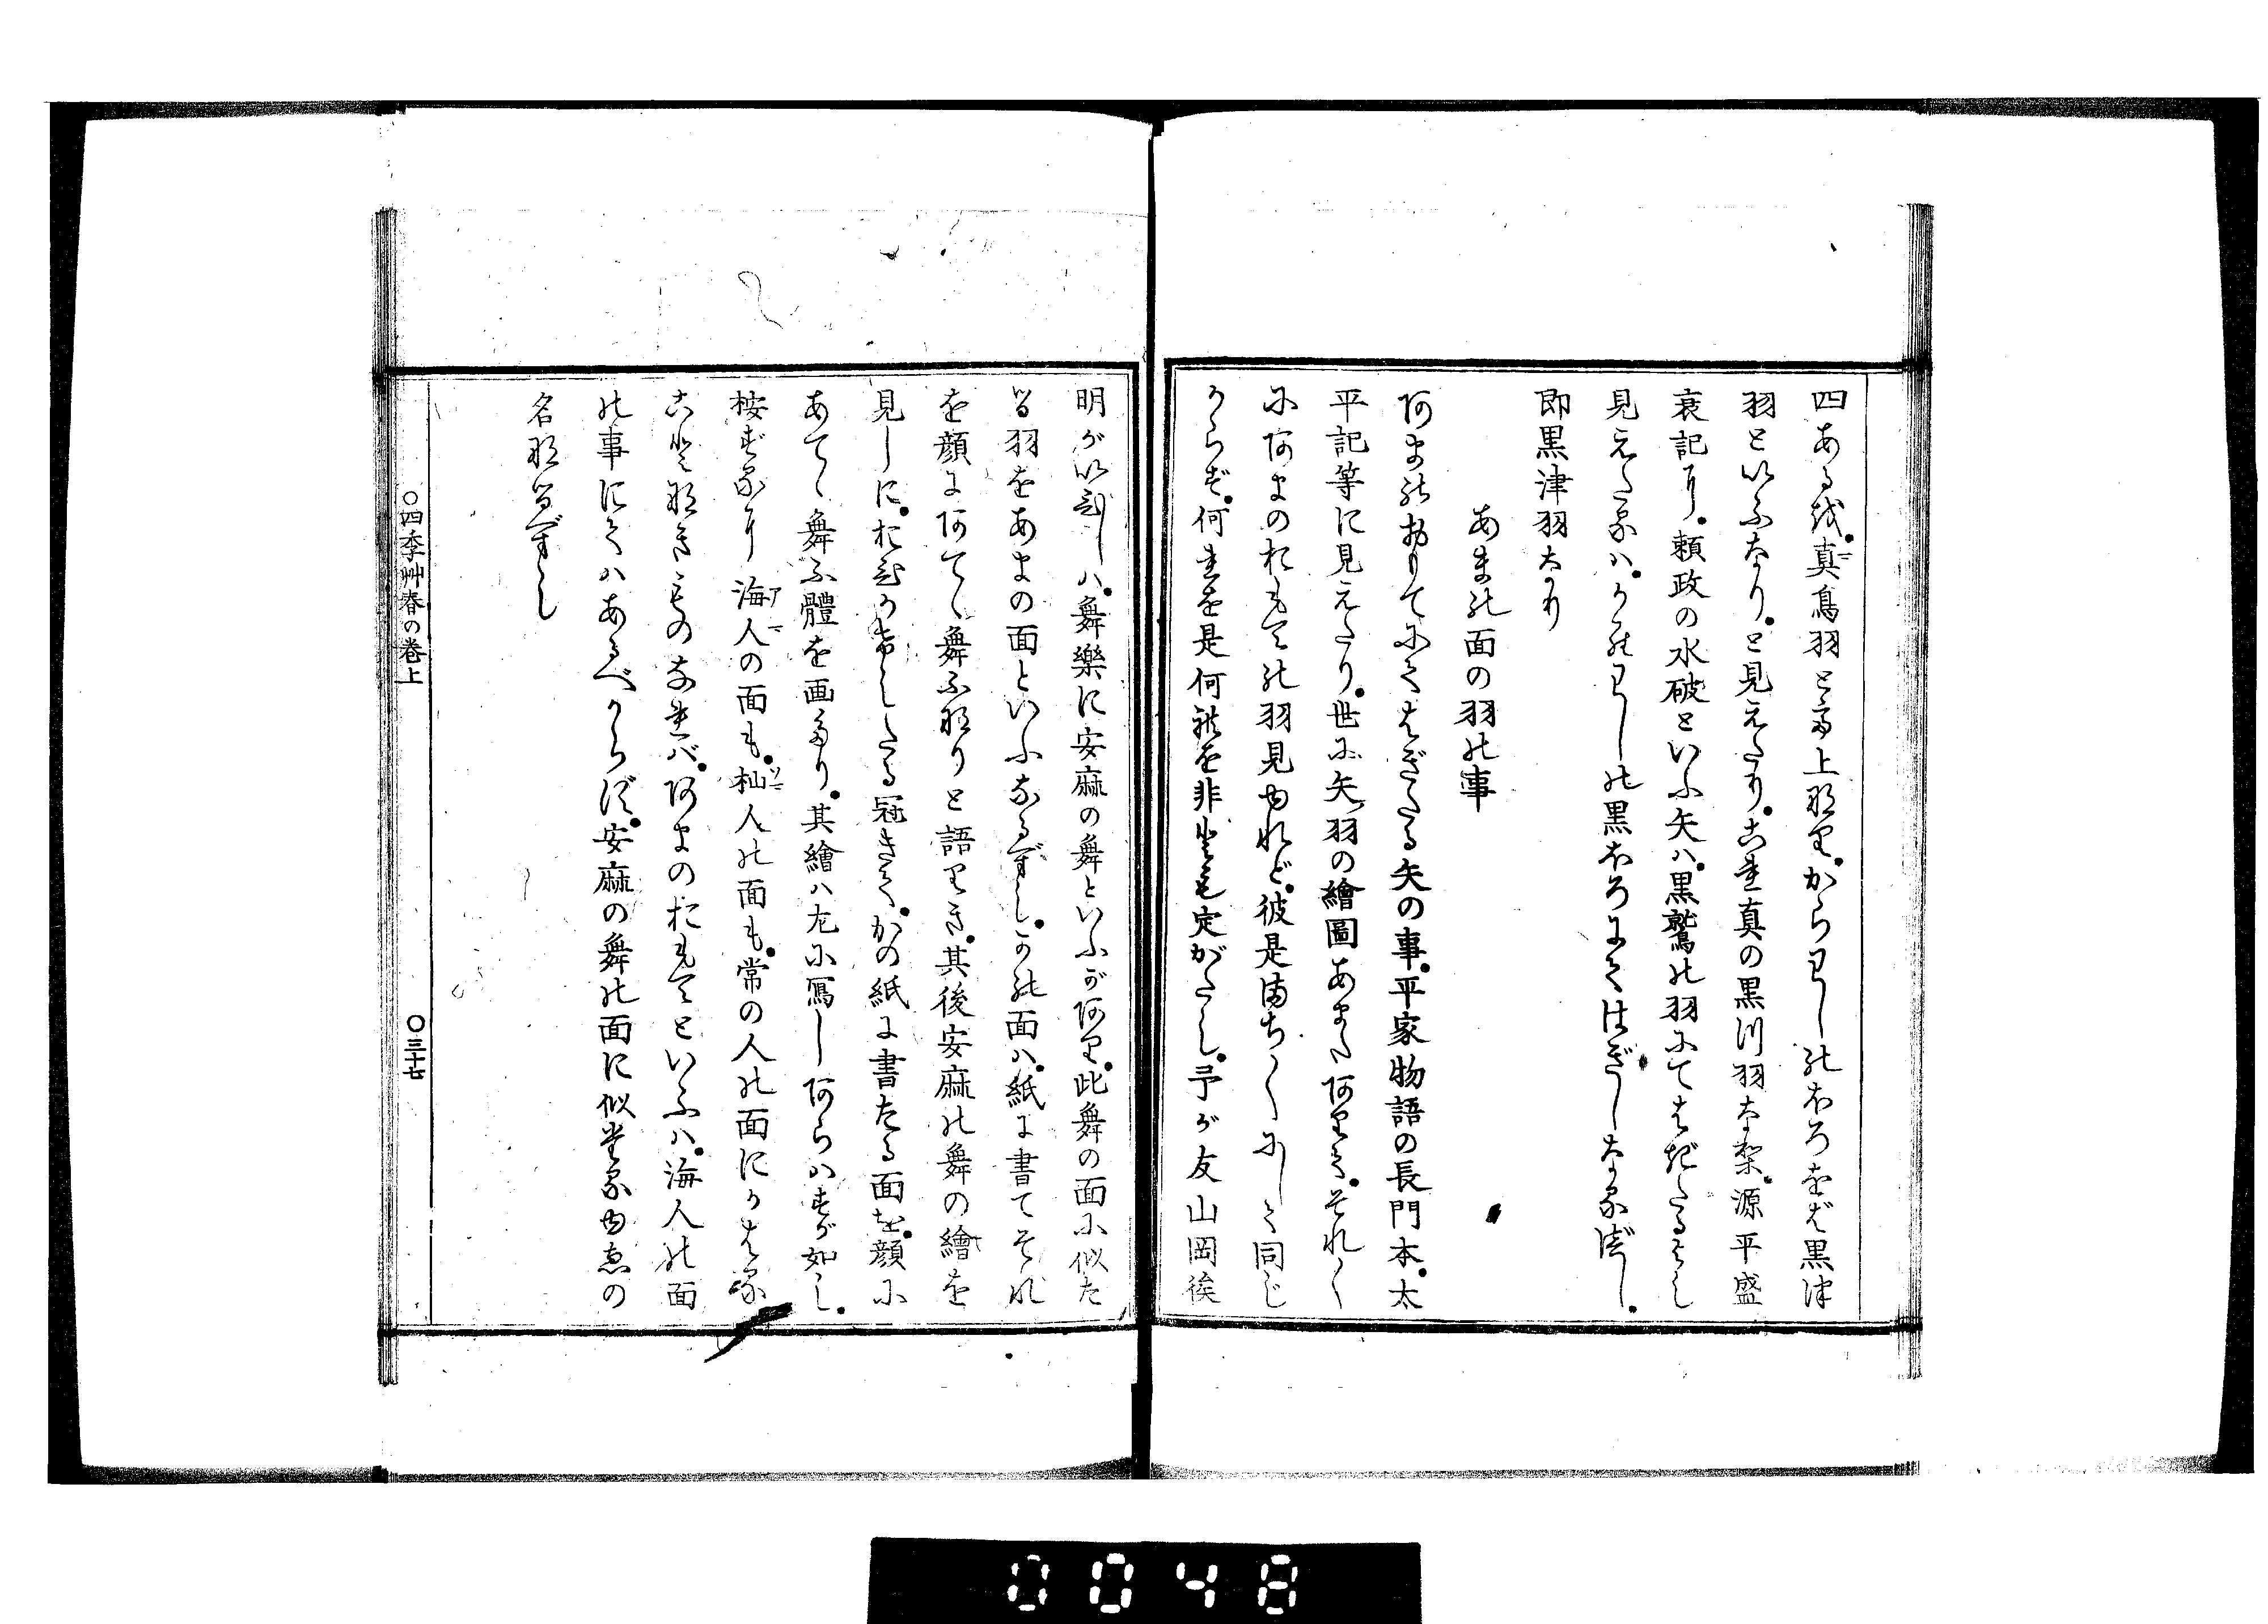 四あるは。真鳥羽とて上なり。からすの黒ほろをば黒津
羽といふなり。と見えたり。これ真の黒つ羽なる。源平盛
衰記に。頼政の水破といふ矢ハ。黒鷲の羽にてはぎたるよし
見えたるハ。かのわしの黒ほろにてはぎしなるべし。
即黒津羽なり
あまの面の羽の事
阿まのおもてにてはぎたる矢の事。平家物語の長門本。太
平記等に見えたり。世に矢羽の繪圖あまた阿りて。それ〱
に阿まのおもての羽見ゆれど。彼是まち〱にして同じ
からず。何れを是何れを非とも定がたし。予が友山岡俟
明がいひしハ。舞樂に安麻の舞といふが阿り。此舞の面に似た
る羽をあまの面といふなるべし。かの面ハ。紙に書てそれ
を顔に阿てゝ舞ふなりと語りき。其後安麻の舞の繪を
見しに。おひかけしたる冠きて。かの紙に書たる面を。顔に
あてゝ舞ふ體を画たり。其繪ハ左に寫し阿らハすが如し。
桉ずるに海人の面も。杣人の面も。常の人の面にかはる
ことなきものなれバ。阿まのおもてといふハ。海人の面
の事にてハあるべからず。安麻の舞の面に似たるゆゑの
名なるべし
○四季艸春の巻上
○三十七
0048